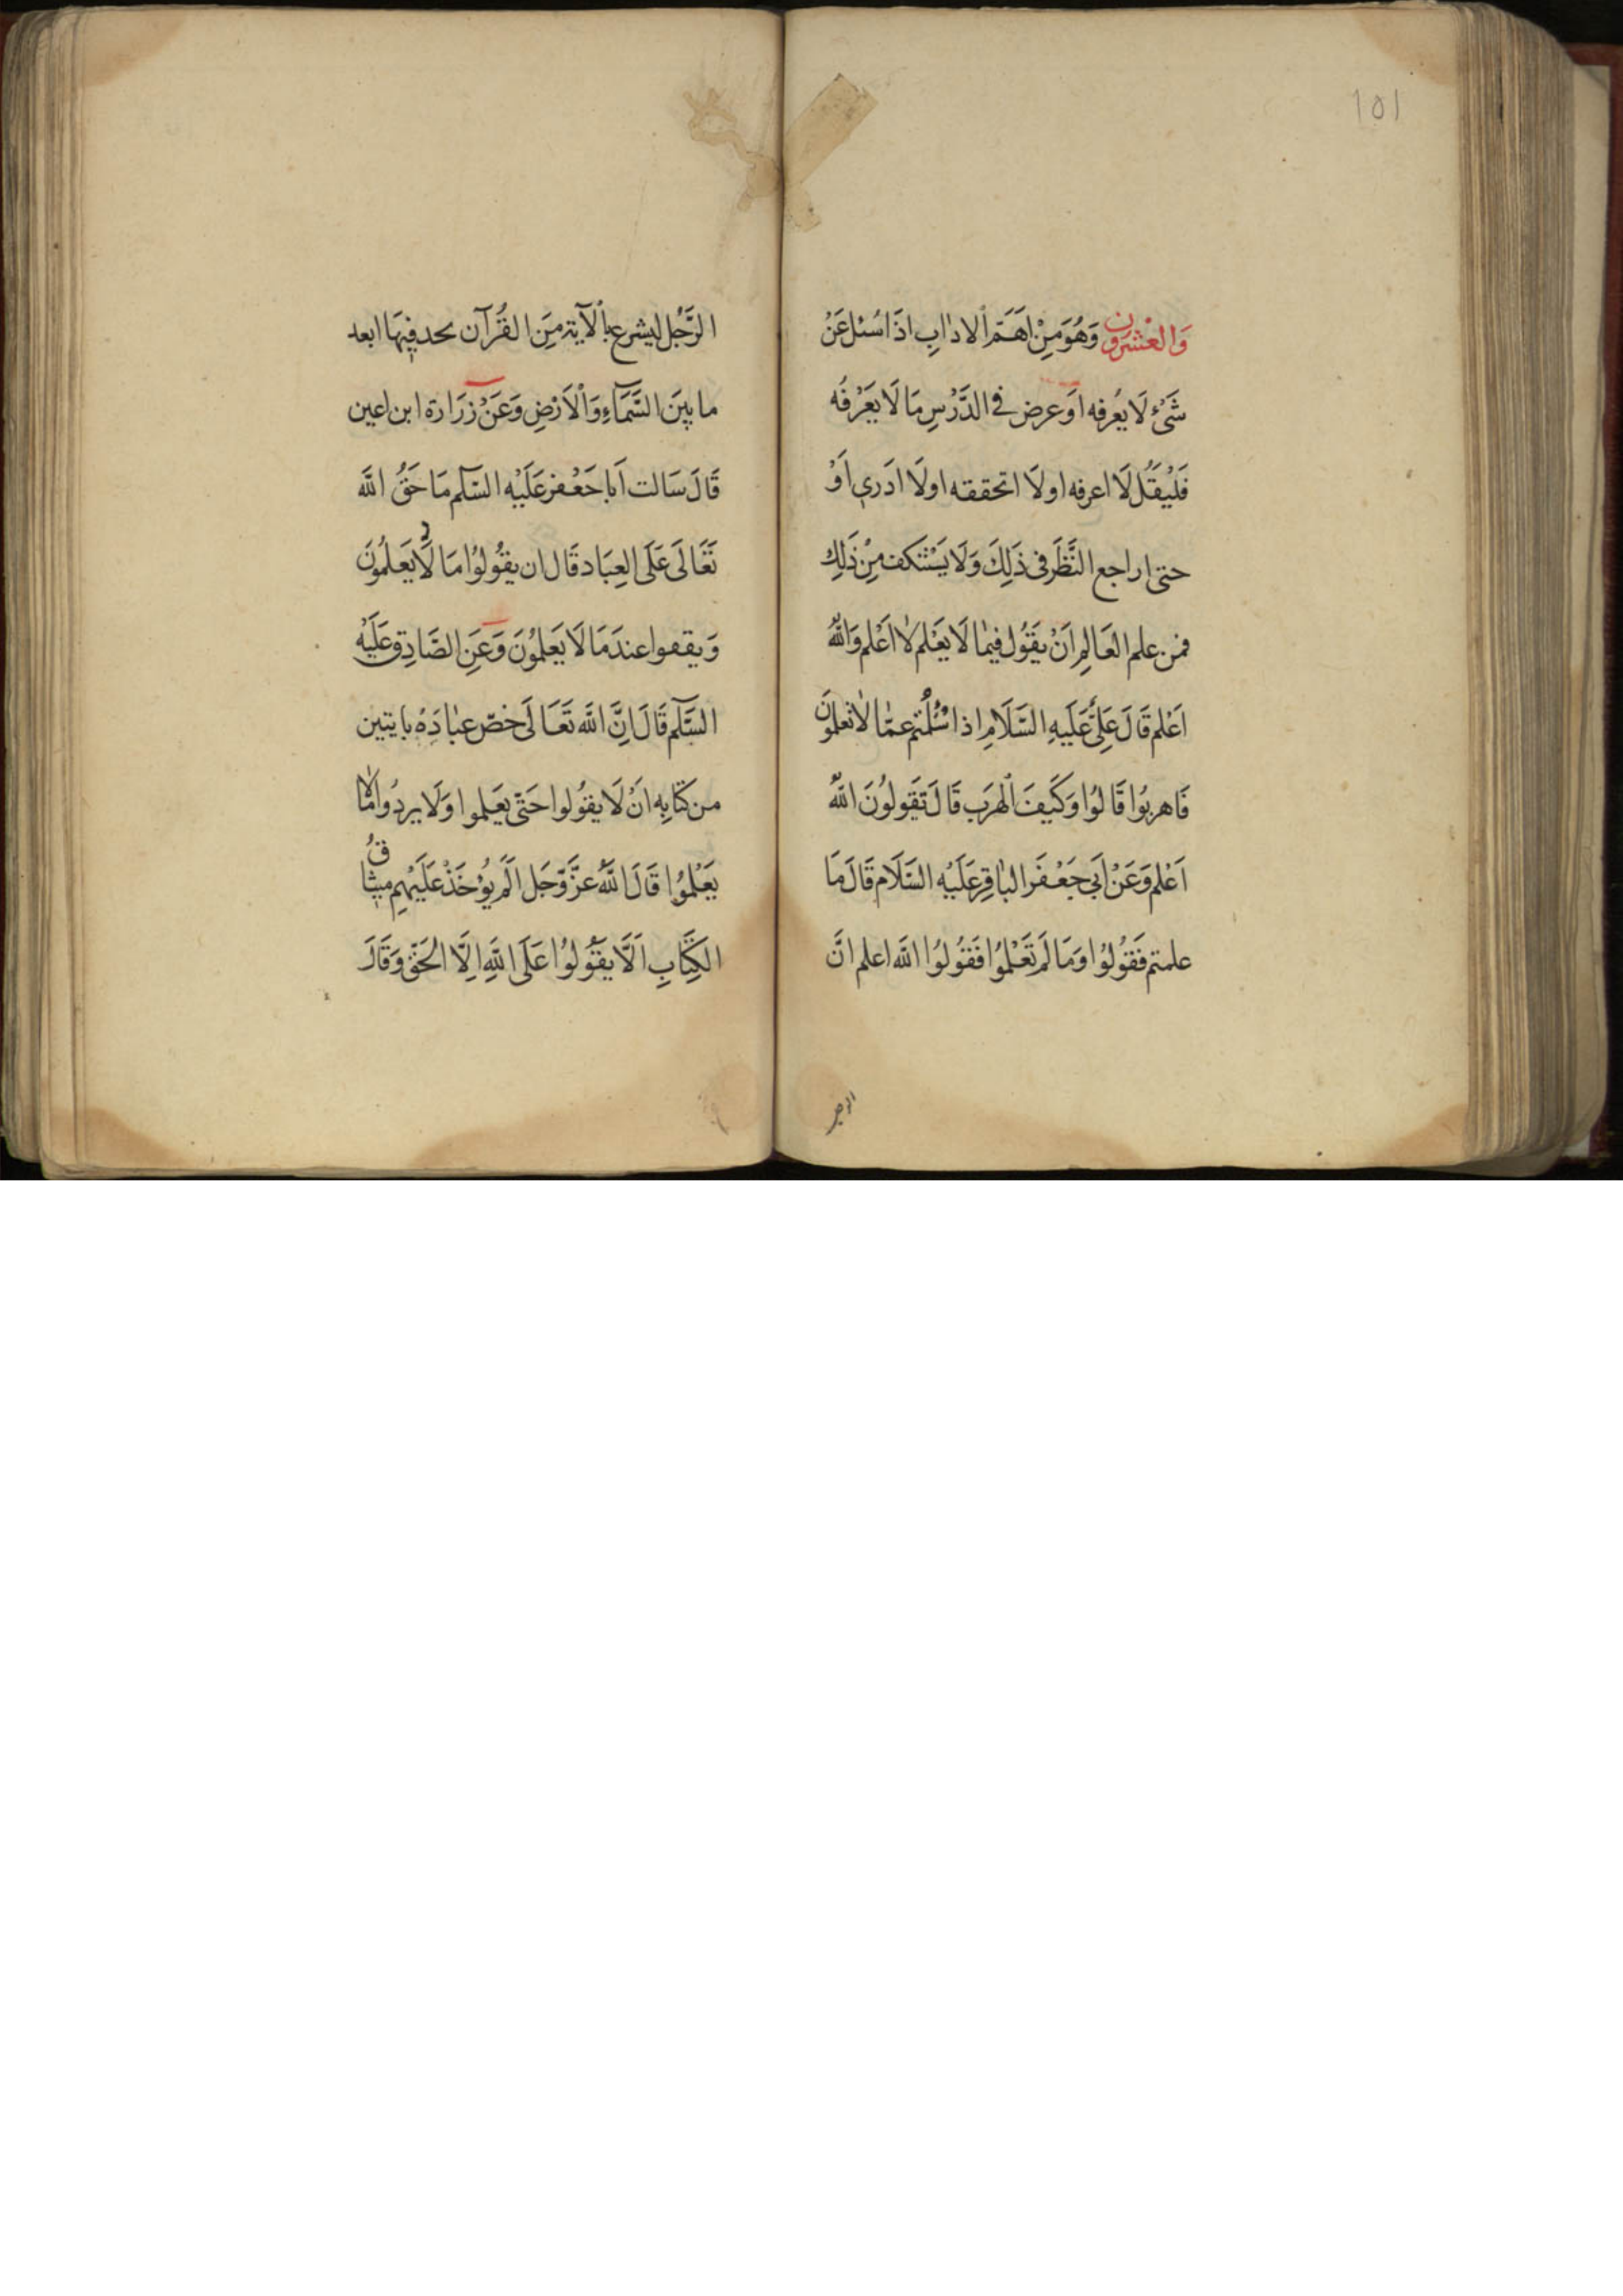 ١٥١
وَالعْشرُون وَهُوَ مِنْ اَهَمّ الادٰابِ اذَا سُئل عَنْ
شَئْ لَا يعُرفه اَوعرض فى الدَّرْسِ مَا لَا يعَرْفُه
فَلْيْقَلُ لَا اعرفه اولَا اتحققه اولَا ادَرى اَوْ
حتى اراجع النَّظَر فى ذَلِكَ وَلَا يَسْتنكف مِنْ ذَلِك
فمن علم العَالِمِ اَنْ يقَوُل فيمٰا لَا يعَْلم لٰا اَعْلم وَاللّٰهُ
اَعْلم قَالَ عَلِىٌّ عَلَيهِ السَّلَامِ اذا سُئلْتم عمّٰا لٰا تعلموُنَ
فَاهربُوا قَالوُا وَكَيفَ الْهرَب قَالَ تقَولوُنَ اللّٰهُ
اَعْلم وَعَنْ اَبى جَعْفَر البٰاقِرِ عَلَيْهِ السَّلَام قَالَ مَا
علمتم فَقوُلوُا وَمَا لَم تَعْلموُا فَقوُلوُا اللّٰه اعلم انَّ
الرَّجُل ليشرع بالْآيةِ مِنَ القُرآن يحد فيهَا ابعد
ما بينَ السَّمَآءِ وَاْلاَرْضِ وَعَنْ زرَارة ابن اعين
قَالَ سَالت اَبا جَعْفر عَلَيْه السّلم مَا حَقُّ اللّٰه
تَعَالَى عَلَى العِبَاد قَال ان يقوُلوُا مَا لَا يَعَلموُنَ
وَيقفوا عندَ مَا لَا يَعلموُنَ وَعَنِ الصَّادِق عَلَيْه
السَّلم قَالَ اِنَّ اللّٰه تَعَالَى خصّ عبٰادَهُ بايتين
من كتَابِه اَنْ لَا يقوُلوا حَتّى يعَلموا وَلَا يردوُا مٰا لا
يَعْلموُا قَالَ اللّٰهُ عزَّ وَّجَل اَلَمْ يوُْخَذْ عَلَيْهِم ميثٰاقُ
الكِتَابِ اَلَّا يقَوُلوُا عَلَى اللّٰهِ اِلَّا الحَقّ وَقَالَ